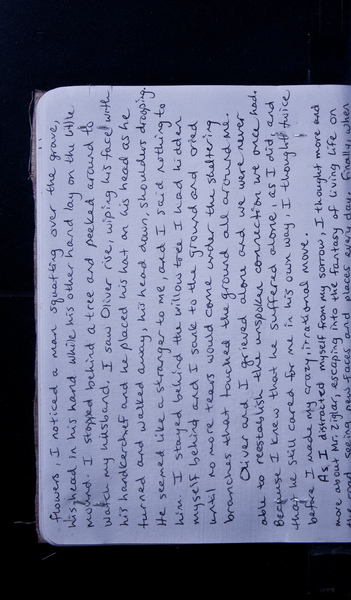 flowers, I noticed a man squatting over the grave,
his head in his hand while his other hand lay on the little
mound. I stopped behind a tree and peeked around to
watch my husband. I saw Oliver rise, wiping his face with
his handkerchief and he placed his hat on his head as he
turned and walked away, his head down, shoulders drooping.
He seemed like a stranger to me, and I said nothing to
him. I stayed behind the willow tree I had hidden
myself behind and I sank to the ground and cried
until no more tears would come under the sheltering
branches that touched the ground all around me.
Oliver and I grieved alone and we were never
able to reestablish the unspoken connection we once had.
Because I knew that he suffered alone, as I did, and
that he still cared for me in his own way, I thought twice
before I made my crazy, irrational move.
As I distracted myself from my sorrow, I thought more and
more about Mr. Ziglar, escaping into the fantasy of living life on
the road seeing new faces and places every day. Finally, when